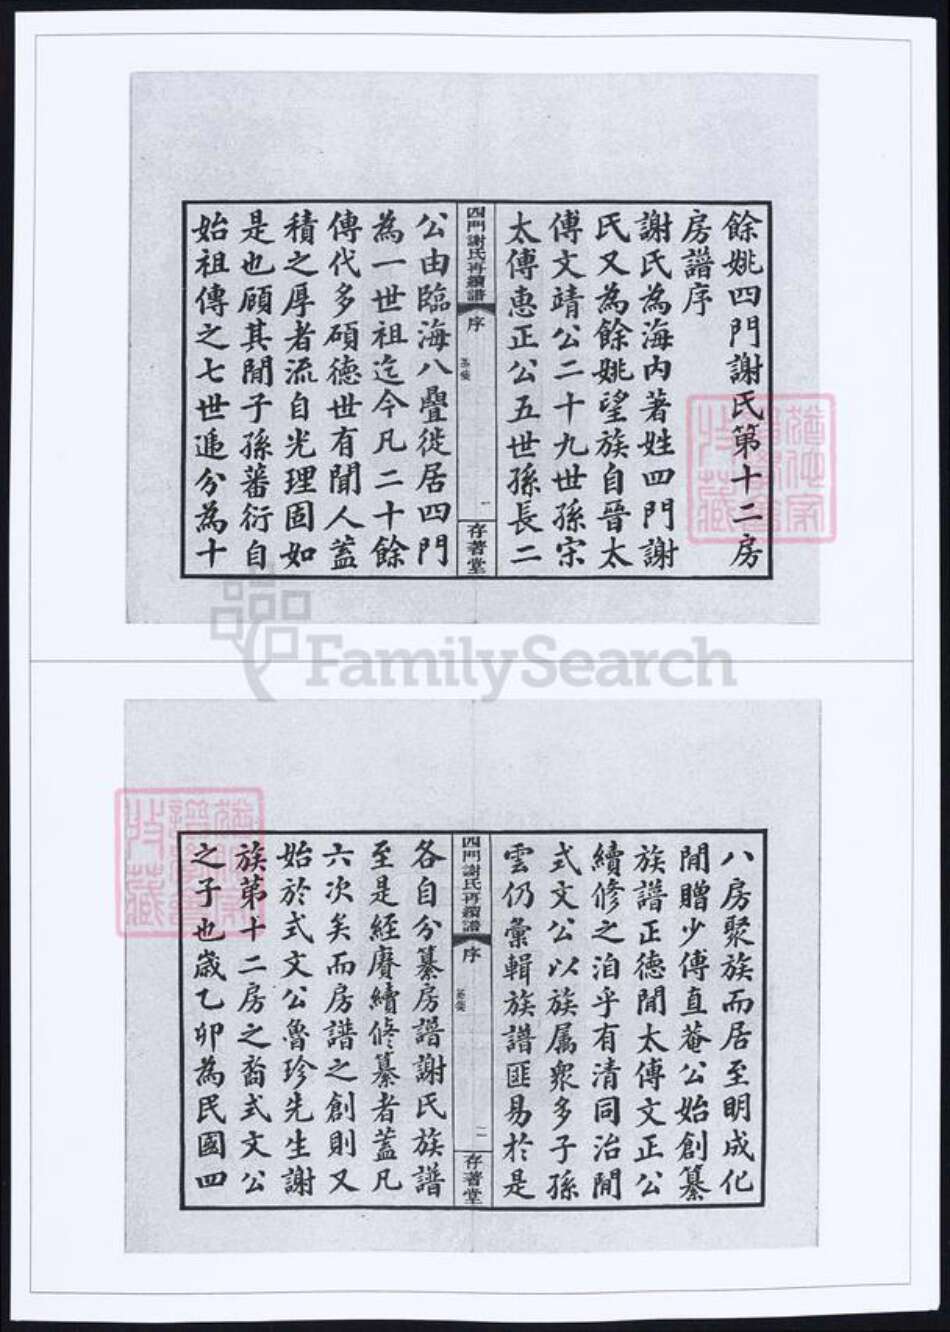 餘姚四門謝氏第十二房
房譜序
謝氏為海內著姓四門謝
氏又為餘姚望族自晉太
傅文靖公二十九世孫宋
太傅惠正公五世孫長二
四門謝氏再續譜
序
一
存著堂
公由臨海八疊徙居四門
為一世祖迄今凡二十餘
傳代多碩德世有聞人蓋
積之厚者流自光理固如
是也顧其閒子孫蕃衍自
始祖傳之七世遞分為十
八房聚族而居至明成化
閒贈少傅直菴公始創纂
族譜正德閒太傅文正公
續修之洎乎有清同治閒
式文公以族属衆多子孫
雲仍彙輯族譜匪易於是
四門謝氏再續譜
序
二
存著堂
各自分纂房譜謝氏族譜
至是經賡續修纂者蓋凡
六次矣而房譜之創則又
始於式文公魯珍先生謝
族第十二房之裔式文公
之子也歲乙卯為民國四
FamilySearch